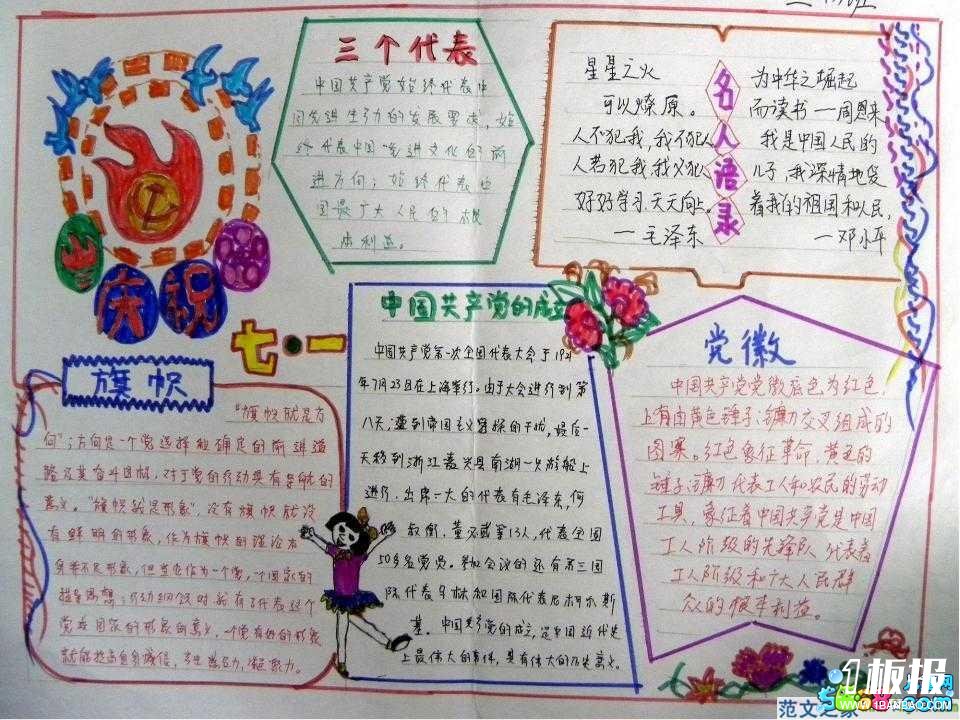 三个代表
中国共产党始终代表中
国先进生产力的发展要求,始
终代表中国先进文化的前
进方向;始终代表中
国最广大人民的根
本利益。
名人语录
星星之火
可以燎原。
人不犯我,我不犯人
人若犯我,我必犯人
好好学习,天天向上。
一毛泽东
为中华之崛起
而读书一周恩来
我是中国人民的
儿子,我深情地爱
着我的祖国和人民,
一邓小平
庆祝
七·一
旗帜
"旗帜就是方
向";方向是一个党选择和确定的前进道
路及其奋斗目标,对于党的行动具有导航的
意义。"旗帜就是形象",没有旗帜就没
有鲜明的形象,作为旗帜的理论本
党和国家的形象的意义,一个党有好的形象
中国共产党的成立
中国共产党第一次全国代表大会于1921
年7月23日在上海举行。由于大会进行到第
八天,遭到帝国主义暗探的干扰,最后一
天移到浙江嘉兴县南湖一只游船上
进行,出席一大的代表有毛泽东,何
叔衡,董必武等13人,代表全国
50多名党员。参加会议的还有第三国
际代表马林和国际代表尼柯尔斯
基。中国共产党的成立,是中国近代史
上最伟大的事件,具有伟大的历史意义。
党徽
中国共产党党徽底色为红色
上有由黄色锤子、镰刀交叉组成的
图案。红色象征革命,黄色的
锤子、镰刀代表工人和农民的劳动
工具,象征着中国共产党是中国
工人阶级的先锋队,代表着
工人阶级和广大人民群
众的根本利益。
板报
WWW.1BANBAO.COM